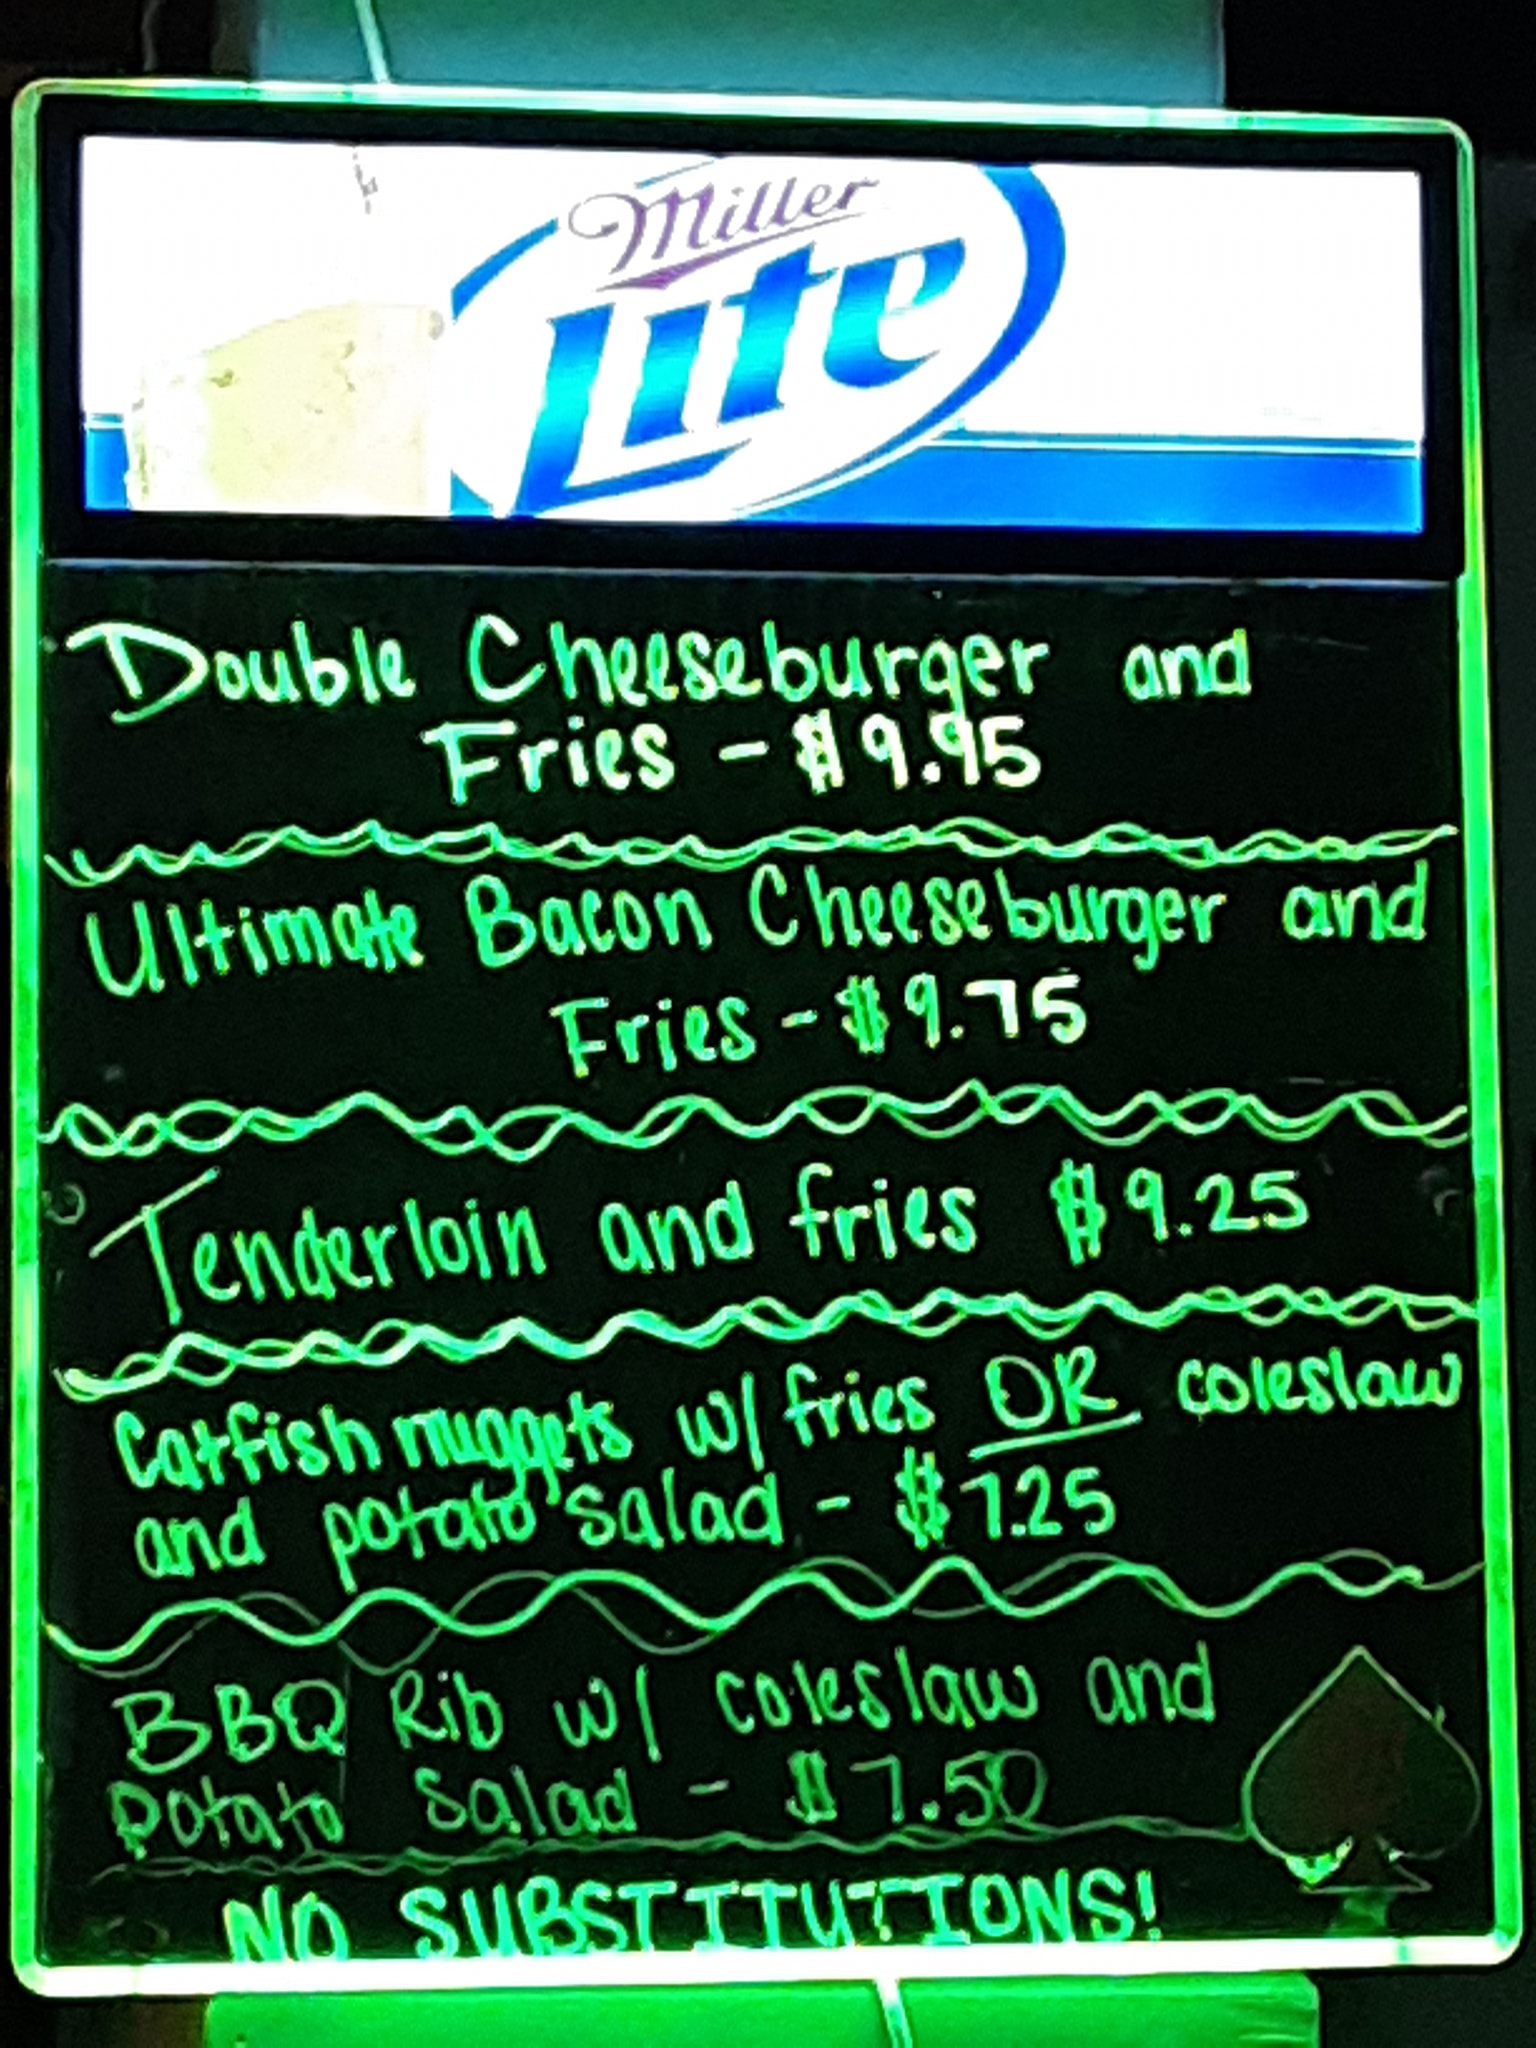 Miller
Lite
Double Cheeseburger and
Fries - $9.95
Ultimate Bacon Cheeseburger and
Fries - $9.75
Tenderloin and fries $9.25
Catfish nuggets w/ fries OR coleslaw
and potato salad - $7.25
BBQ Rib w/ coleslaw and
Potato Salad - $7.50
NO SUBSTITUTIONS!